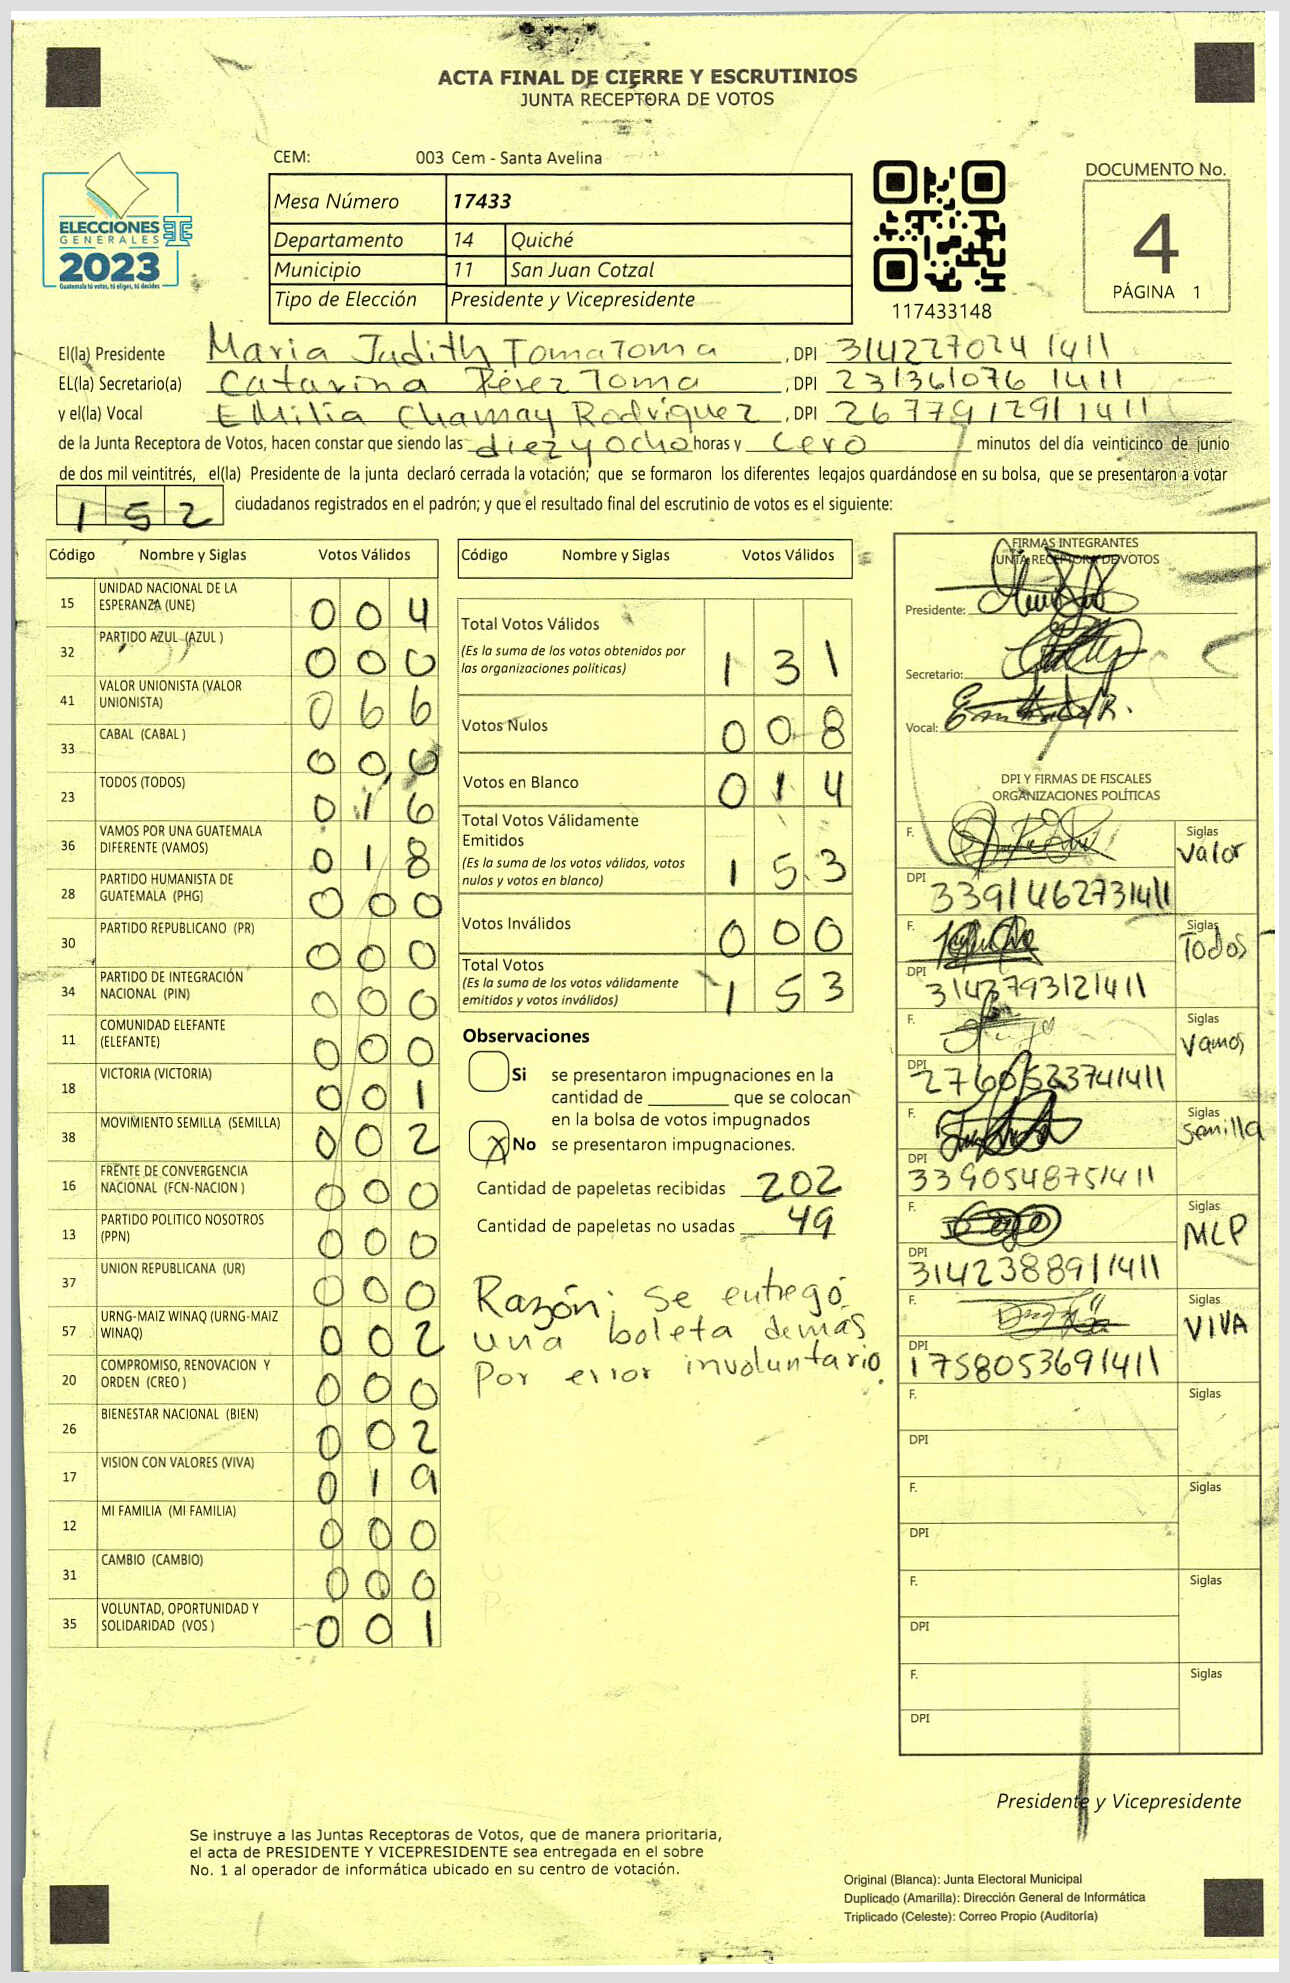 ACTA FINAL DE CIERRE Y ESCRUTINIOS
JUNTA RECEPTORA DE VOTOS
CEM: 003 Cem - Santa Avelina
ELECCIONES
GENERALES
2023
Guatemala tú votas, tú eliges, tú decides
Mesa Número 17433
Departamento 14 Quiché
Municipio 11 San Juan Cotzal
Tipo de Elección Presidente y Vicepresidente
117433148
DOCUMENTO No.
4
PÁGINA 1
El(la) Presidente Maria Judith Toma Toma , DPI 314227024 1411
EL(la) Secretario(a) Catarina Pérez Toma , DPI 231361076 1411
y el(la) Vocal EMilia Chamay Rodríguez , DPI 267791291 1411
de la Junta Receptora de Votos, hacen constar que siendo las diez y ocho horas y cero minutos del día veinticinco de junio
de dos mil veintitrés, el(la) Presidente de la junta declaró cerrada la votación; que se formaron los diferentes legajos guardándose en su bolsa, que se presentaron a votar
152 ciudadanos registrados en el padrón; y que el resultado final del escrutinio de votos es el siguiente:
Código Nombre y Siglas Votos Válidos
15 UNIDAD NACIONAL DE LA ESPERANZA (UNE) 004
32 PARTIDO AZUL (AZUL ) 000
41 VALOR UNIONISTA (VALOR UNIONISTA) 066
33 CABAL (CABAL ) 000
23 TODOS (TODOS) 016
36 VAMOS POR UNA GUATEMALA DIFERENTE (VAMOS) 018
28 PARTIDO HUMANISTA DE GUATEMALA (PHG) 000
30 PARTIDO REPUBLICANO (PR) 000
34 PARTIDO DE INTEGRACIÓN NACIONAL (PIN) 000
11 COMUNIDAD ELEFANTE (ELEFANTE) 000
18 VICTORIA (VICTORIA) 001
38 MOVIMIENTO SEMILLA (SEMILLA) 002
16 FRENTE DE CONVERGENCIA NACIONAL (FCN-NACION ) 000
13 PARTIDO POLITICO NOSOTROS (PPN) 000
37 UNION REPUBLICANA (UR) 000
57 URNG-MAIZ WINAQ (URNG-MAIZ WINAQ) 002
20 COMPROMISO, RENOVACION Y ORDEN (CREO ) 000
26 BIENESTAR NACIONAL (BIEN) 002
17 VISION CON VALORES (VIVA) 019
12 MI FAMILIA (MI FAMILIA) 000
31 CAMBIO (CAMBIO) 000
35 VOLUNTAD, OPORTUNIDAD Y SOLIDARIDAD (VOS ) 001
Código Nombre y Siglas Votos Válidos
Total Votos Válidos 131
(Es la suma de los votos obtenidos por
las organizaciones políticas)
Votos Nulos 008
Votos en Blanco 014
Total Votos Válidamente
Emitidos 153
(Es la suma de los votos válidos, votos
nulos y votos en blanco)
Votos Inválidos 000
Total Votos 153
(Es la suma de los votos válidamente
emitidos y votos inválidos)
Observaciones
Si se presentaron impugnaciones en la
cantidad de ________ que se colocan
en la bolsa de votos impugnados
X No se presentaron impugnaciones.
Cantidad de papeletas recibidas 202
Cantidad de papeletas no usadas 49
Razón: Se entregó
una boleta demás
Por error involuntario.
FIRMAS INTEGRANTES
JUNTA RECEPTORA DE VOTOS
Presidente:
Secretario:
Vocal:
DPI Y FIRMAS DE FISCALES
ORGANIZACIONES POLÍTICAS
F. Siglas Valor
DPI 3391462731411
F. Siglas Todos
DPI 3143793121411
F. Siglas Vamos
DPI 2760523741411
F. Siglas Semilla
DPI 3390548751411
F. Siglas MLP
DPI 3142388911411
F. Siglas VIVA
DPI 1758053691411
F. Siglas
DPI
F. Siglas
DPI
F. Siglas
DPI
F. Siglas
DPI
Presidente y Vicepresidente
Se instruye a las Juntas Receptoras de Votos, que de manera prioritaria,
el acta de PRESIDENTE Y VICEPRESIDENTE sea entregada en el sobre
No. 1 al operador de informática ubicado en su centro de votación.
Original (Blanca): Junta Electoral Municipal
Duplicado (Amarilla): Dirección General de Informática
Triplicado (Celeste): Correo Propio (Auditoría)